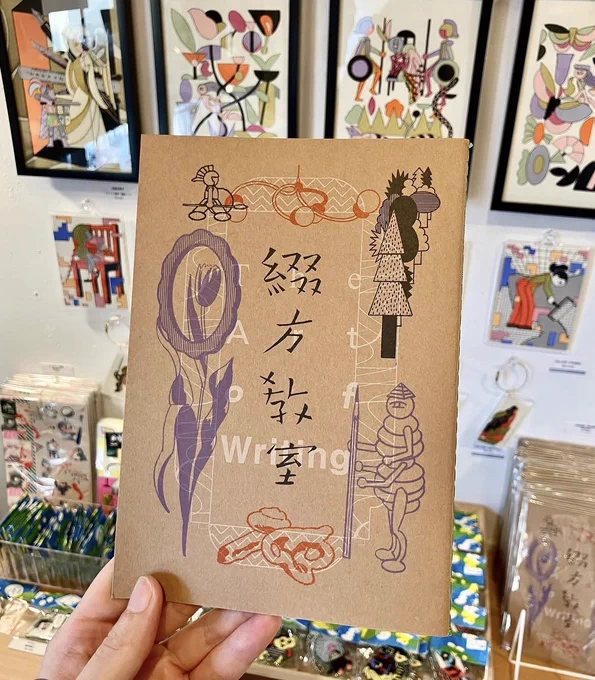 綴方教室
The
Art
of
Writing
綴方教室
Writing